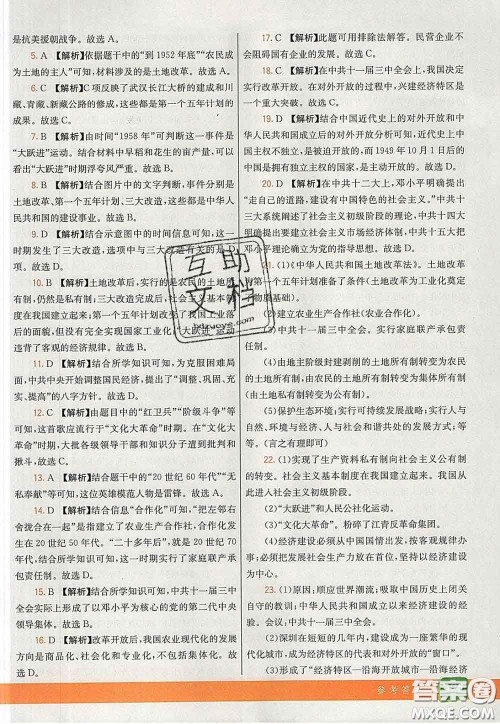 是抗美援朝战争。故选 A。
5. A 【解析】依据题干中的“到 1952 年底”“农民成
为土地的主人”可知，材料涉及的是土地改革。故选 A。
6. C 【解析】C 项反映了武汉长江大桥的建成和川
藏、青藏、新藏公路的通车，这些都是第一个五年计划的
成果。故选 C。
7. B 【解析】由时间“1958 年”可判断这一事件是
“大跃进”运动。结合材料中早稻和花生的亩产量，可以
看出“大跃进”时期浮夸风严重。故选 B。
8. B 【解析】结合图片中的文字判断，事件分别是
土地改革、第一个五年计划、三大改造，它们共同反映的
是中共的建设事业。故选 B。
9. D 【解析】结合示意图中的时间信息可知，这一
时期发生了三大改造，选项 D 与三大改造相符，故 D 项
正确。故选 D。
10. D 【解析】土地改革后，实行的是农民的土地所
有制，仍然是私有制，三大改造完成后，
落后的面貌，但超越了
违背了客观的经济规律。故选 D。
11. C 【解析】结合所学知识可知，为克服困难局
面，中共中央开始调整国民经济，提出了“调整、巩固、充
实、提高”的八字方针。故选 C。
12. D 【解析】由题目中的“红卫兵”“阶级斗争”等
可知，这首歌应流行于“文化大革命”时期。在“文化大
革命”时期，大批各级领导干部和知识分子受到迫害。
故选 D。
13. A 【解析】结合题干中的“20 世纪 60 年代”“无
私奉献”等可知，这位英雄模范人物是雷锋。故选 A。
14. D 【解析】结合信息“合作化”可知，“把左邻右
舍混合在一起”体现了农业生产合作社，合作化发生在
20 世纪 50 年代。“二十多年后”，就是 20 世纪 70
年代，结合所学知识可知，这一时期实行了家庭联产承
包责任制。故选 D。
15. D 【解析】结合所学知识可知，十一届三中
全会实际上形成了以邓小平为核心的党的第二代中央
领导集体。故选 D。
16. D 【解析】改革开放后，我国农业现代化的发展
方向是商品化、社会化和专业化，不包括集体化。故
选 D。
17. C 【解析】此题可用排除法解答。民营企业不
会阻碍国有企业的改革。故选 C。
18. C 【解析】在中共十一届三中全会后，我国决定
实行改革开放。在对外开放的过程中，兴建经济特区是
一个重大突破。故选 C。
19. D 【解析】结合中国近代史上的对外开放和现
代史上的对外开放分析可知，近代史上中国没有独立自
主权，而 1949 年 10 月 1 日后的中国是拥有独立主权的国家，是独立自主的。故选 D。
20. D 【解析】在中共十二大上，邓小平明确提出
“走自己的道路，建设有中国特色的社会主义”，中共十
三大系统阐述了社会主义初级阶段的理论，中共十四大
明确提出建立社会主义市场经济体制，中共十五大把邓小平理论确立为党的指导思想。故选 D。
21. (1)《中华人民共和国土地改革法》。(意义：为
第一个五年计划准备了条件，为社会主义工业化奠定
了物质基础)。
(2)建立农业生产合作社(农业合作化)。
(3)中共十一届三中全会。实行家庭联产承包责
任制。
(4)由地主阶级封建剥削的土地所有制转变为农民
的土地所有制；由农民的土地所有制转变为集体所有制
(或社会主义公有制)。
(5)保护生态环境；实行可持续发展战略；实行对农
民有利的政策；大力发展生产力；以经济建设为中心；
等等。(言之有理即可)
22. (1)实现了生产资料私有制向社会主义公有制
的转变，社会主义基本制度在我国建立起来。社会主义
基本制度在我国建立起来，我国从此进入社会主义初级
阶段。
(2)“大跃进”和人民公社化运动。
(3)“文化大革命”。粉碎了江青反革命集团。
(4)经济建设要遵循客观规律；经济建设要从国情
出发；要把发展社会生产力摆在首要位置；等等。
23. (1)原因：顺应世界潮流；吸取中国历史上闭关
自守的教训；中华人民共和国成立以来经济建设的经
验。会议：中共十一届三中全会。
(2)深圳在短短的几年内，建设成为一座繁华的现
代化城市，成为对外开放的“窗口”。
(3)形成了“经济特区—沿海开放城市—沿海经济
互助
文档
参考答
答案圈
MXQE.COM